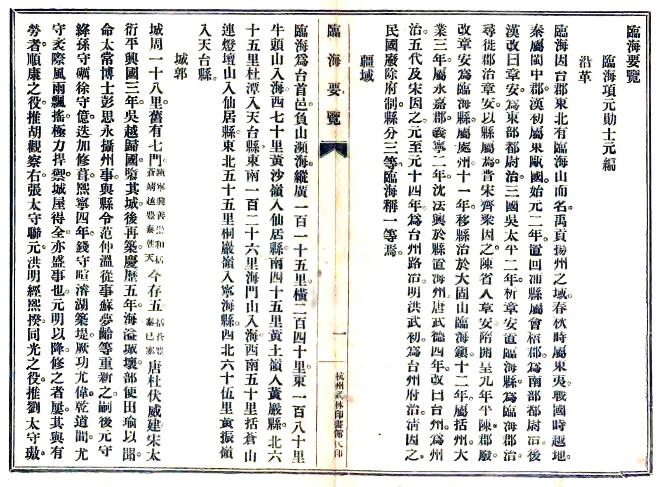 臨海要覽
臨海項元勛士元編
沿革
臨海因台郡東北有臨海山而名禹貢揚州之域春秋時屬東夷戰國時越地
秦屬閩中郡漢初屬東甌國始元二年置回浦縣屬會稽郡爲南部都尉治後
漢改曰章安爲東部都尉治三國吳太平二年析章安置臨海縣爲臨海郡治
尋徙郡治章安以縣屬焉晉宋齊梁因之陳省入章安隋開皇九年平陳郡廢
改章安爲臨海縣屬處州十一年移縣治於大固山臨海鎮十二年屬括州大
業三年屬永嘉郡義寧二年沈法興於縣置海州唐武德四年改曰台州爲州
治五代及宋因之元至元十四年爲台州路治明洪武初爲台州府治淸因之
民國廢除府制縣分三等臨海稱一等焉
疆域
臨海要覽
一
杭州武林印書館代印
臨海爲台首邑負山瀕海縱廣一百一十五里橫二百四十里東一百八十里
牛頭山入海西七十里黃沙嶺入仙居縣南四十五里黃土嶺入黃巖縣北六
十五里杜潭入天台縣東南一百二十六里海門山入海西南五十里括蒼山
連燈壇山入仙居縣東北五十五里桐巖嶺入寧海縣西北六十伍里黃振嶺
入天台縣
城郭
城周一十八里舊有七門鎭寧興善崇和括蒼靖越豐泰朝天今存五唐杜伏威建宋太
平興國三年吳越歸國隳其城後再築慶歷五年海溢城壞部使田瑜以聞
命太常博士彭思永攝州事與縣令范仲溫從事蘇夢齡等重新之嗣後元守
絳孫守礪徐守億迭加修葺熙寧四年錢守暄濬湖築堤厥功尤偉乾道間尤
守袤際風雨飄搖極力捍禦城屋得全亦盛事也元明以降修之者屢其與有
勞者順康之役推胡觀察右張太守聯元洪明經熙揆同光之役推劉太守璈